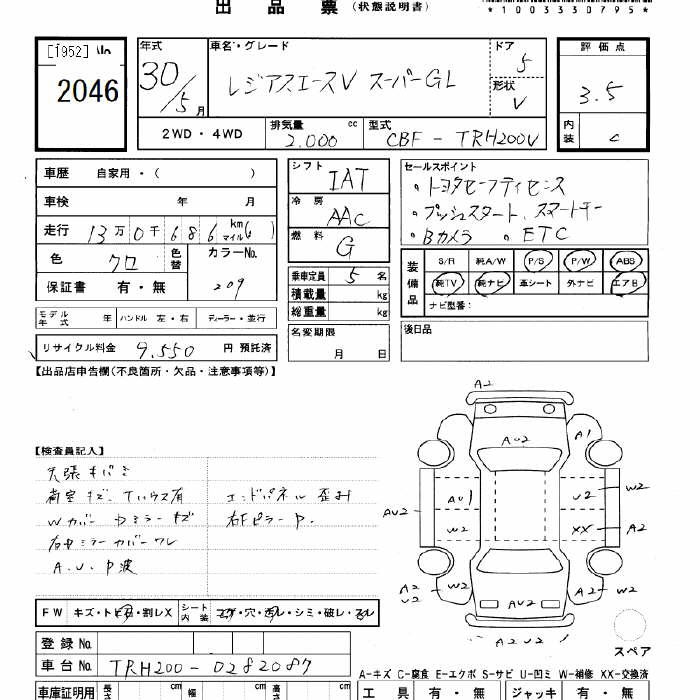 出品票（状態説明書）
*1003330795*
[1952]
2046
年式 30/5月
車名・グレード レジアスエースV スーパーGL
ドア 5
形状 V
評価点 3.5
内装 C
2WD・4WD
排気量 2.000 cc
型式 CBF-TRH200V
車歴 自家用・( )
車検 年 月
走行 13万0千686 km マイル
色 クロ 色替
カラーNo. 209
保証書 有・無
シフト IAT
冷房 AAC
燃料 G
乗車定員 5名
積載量 kg
総重量 kg
名変期限 月 日
セールスポイント
・トヨタセーフティセンス
・プッシュスタート、スマートキー
・Bカメラ ・ETC
装備品 S/R 純A/W P/S P/W ABS
純TV 純ナビ 革シート 外ナビ エアB
ナビ型番：
後日品
モデル年式 年 ハンドル 左・右 ディーラー・並行
リサイクル料金 9.550 円 預託済
【出品店申告欄(不良箇所・欠品・注意事項等)】
【検査員記入】
天張キバミ
荷室キズ、Tハウス有 エンドパネル歪み
Wカバー Dミラーキズ 右FピラーP.
右ミラーカバーワレ
A.U.P波
A2
AU2
A1
AU1
U2
W2
AU2
W2
XX
A2
A2
U2
W2
AU2
W2
A2
A2U2
スペア
FW キズ・トビ石・割レX
シート内装 コゲ・穴・スレ・シミ・破レ・ヨゴレ
登録No.
車台No. TRH200-0282087
A-キズ C-腐食 E-エクボ S-サビ U-凹ミ W-補修 XX-交換済
車庫証明用 cm 幅 cm 高さ cm
工具 有・無 ジャッキ 有・無